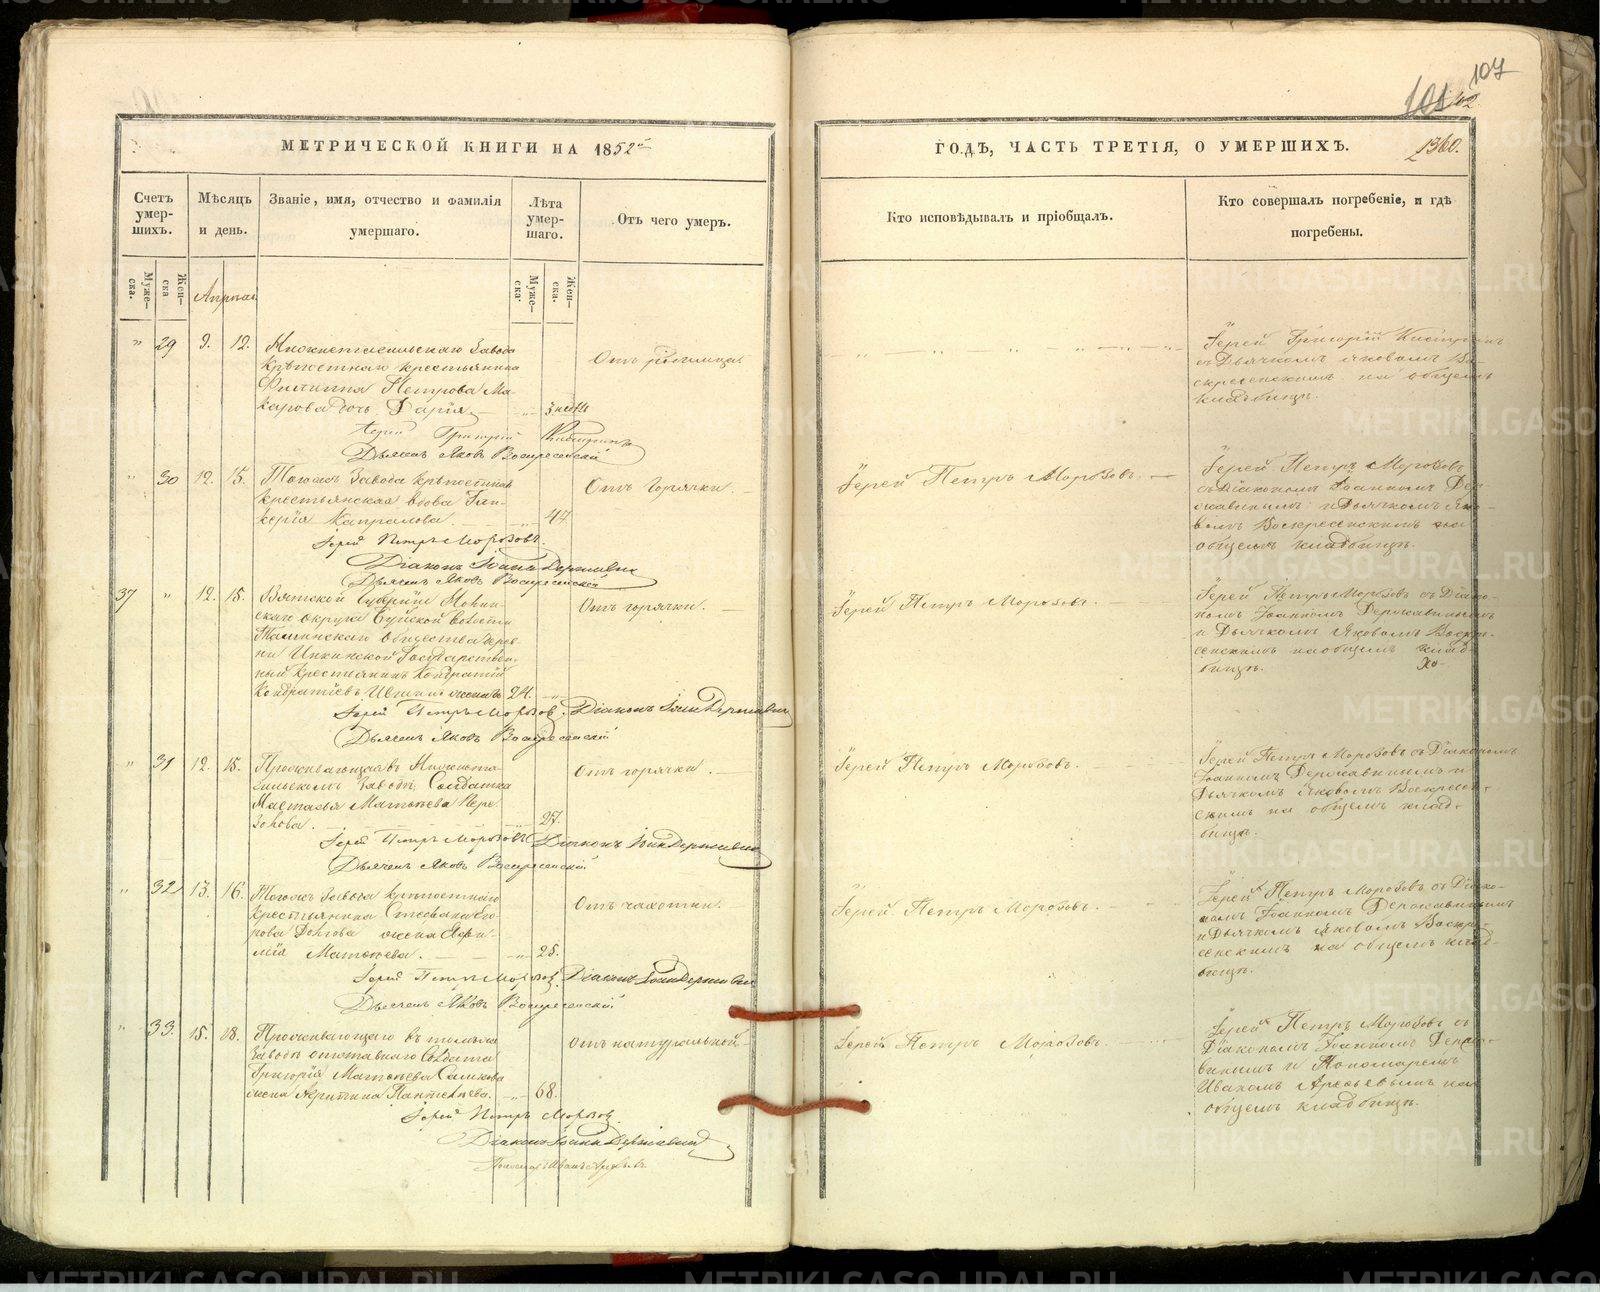 107
101 102
МЕТРИЧЕСКОЙ КНИГИ НА 1852й
Счетъ умер- шихъ.
Мѣсяцъ и день.
Званіе, имя, отчество и фамилія умершаго.
Лѣта умер- шаго.
Отъ чего умеръ.
Муже- ска.
Жен- ска
Муже- ска.
Жен- ска.
Апрѣль
" 29 9. 12. Нижнетагильскаго Завода
крѣпостнаго крестьянина
Филиппа Петрова Ма-
карова дочь Дарія. 3 нед.
Отъ родимца.
Іерей Григорій
Дьячекъ Яковъ Воскресенскій
" 30 12. 15. Тогожъ Завода крѣпостная
крестьянская вдова Гли-
керія Капралова. 47.
Отъ горячки.
Іерей Петръ Морозовъ.
Діаконъ Іоаннъ Державинъ
Дьячекъ Яковъ Воскресенскій
37 " 12. 15. Вятской Губерніи
скаго округа волости
общества дерев-
ни Государствен-
ный крестьянинъ Кондратій
Кондратіевъ 24.
Отъ горячки.
Іерей Петръ Морозовъ. Діаконъ Іоаннъ Державинъ
Дьячекъ Яковъ Воскресенскій
" 31 12. 15. Проживающая въ Нижнета-
гильскомъ Заводѣ Солдатка
Настасья Матвѣева
27.
Отъ горячки.
Іерей Петръ Морозовъ Діаконъ Іоаннъ Державинъ
Дьячекъ Яковъ Воскресенскій
" 32 13. 16. Тогожъ Завода крѣпостнаго
крестьянина Степана
Долгова жена Ефи-
мія Матвѣева. 25.
Отъ чахотки.
Іерей Петръ Морозов. Діаконъ Іоаннъ Державин
Дьячекъ Яковъ Воскресенскій
" 33. 15. 18. Проживающаго въ томже
Заводѣ отставнаго Солдата
Григорія Матвѣева
жена Пантелѣева. 68.
Отъ натуральной.
Іерей Петръ Морозов
Діаконъ Іоаннъ Державин
ГОДЪ, ЧАСТЬ ТРЕТІЯ, О УМЕРШИХЪ.
1360.
Кто исповѣдывалъ и пріобщалъ.
Кто совершалъ погребеніе, и гдѣ погребены.
Іерей Григорій
съ Дьячкомъ Яковомъ Во-
скресенскимъ на общемъ
кладбищѣ.
Іерей Петръ Морозовъ.
Іерей Петръ Морозовъ
съ Діакономъ Іоанномъ Дер-
жавинымъ и Дьячкомъ Яко-
вомъ Воскресенскимъ на
общемъ кладбищѣ.
Іерей Петръ Морозовъ.
Іерей Петръ Морозовъ съ Діако-
номъ Іоанномъ Державинымъ
и Дьячкомъ Яковомъ Воскре-
сенскимъ на общемъ клад-
бищѣ.
Іерей Петръ Морозовъ.
Іерей Петръ Морозовъ съ Діакономъ
Іоанномъ Державинымъ и
Дьячкомъ Яковомъ Воскресен-
скимъ на общемъ клад-
бищѣ.
Іерей Петръ Морозовъ.
Іерей Петръ Морозовъ съ Діако-
номъ Іоанномъ Державинымъ
и Дьячкомъ Яковомъ Воскре-
сенскимъ на общемъ клад-
бищѣ.
Іерей Петръ Морозовъ.
Іерей Петръ Морозовъ съ
Діакономъ Іоанномъ Держа-
винымъ и Пономаремъ
Иваномъ Арефьевымъ на
общемъ кладбищѣ.
METRIKI.GASO-URAL.RU